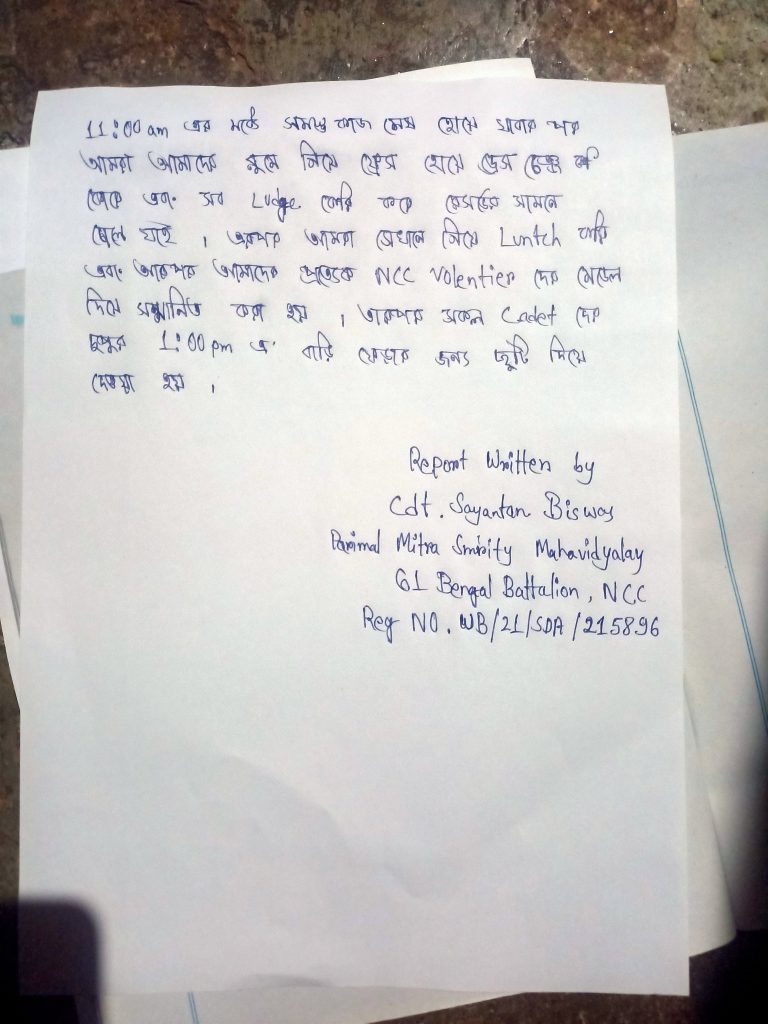 11:00 am এর মধ্যে সমস্ত কাজ শেষ হোয়ে যাবার পর
আমরা আমাদের রুমে গিয়ে ফ্রেস হোয়ে ড্রেস চেঞ্জ
এবং সব Ludge করে সামনে
চলে যাই । তারপর আমরা সেখানে গিয়ে Luntch করি
এবং তারপর আমাদের প্রত্যেকে NCC Volentier দের মেডেল
দিয়ে সম্মানিত করা হয় । তারপর সকল Cadet দের
দুপুর 1:00 pm এ বাড়ি ফেরার জন্য ছুটি দিয়ে
দেওয়া হয় ।
Report Written by
Cdt. Sayantan Biswas
Parimal Mitra Smirity Mahavidyalay
61 Bengal Battalion, NCC
Reg NO. WB/21/SDA/215896